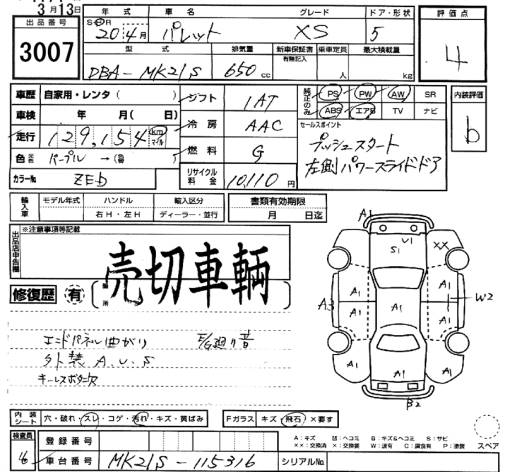 3月13日
出品番号 3007
年式 車名 グレード ドア・形状 評価点
20年4月 パレット XS 5 4
型式 排気量 新車保証書 乗車定員 最大積載量
有無記入
DBA-MK21S 650cc 人 kg
車歴 自家用・レンタ( ) シフト 1AT 純正のみ PS PW AW SR 内装評価
車検 年 月( 日) 冷房 AAC ABS エアB TV ナビ b
走行 129,154 km マイル 燃料 G セールスポイント
色 パープル→( ) プッシュスタート
カラーNo ZED リサイクル料金 10,110円 左側パワースライドドア
輸入車 モデル年式 ハンドル 輸入区分 書類有効期限
右H・左H ディーラー・並行 月 日迄
出品店申告欄 ※注意事項等記載
売切車輌
修復歴 有
エンドパネル曲がり E/G廻り音
外装 A.U.S
キーレスボタン欠
A1
U1 XX
S1
A1 A1 A1
A3 A1 A1 A1 W2
A1
B2
内装シート 穴・破れ・スレ・コゲ・汚れ・キズ・黄ばみ Fガラス キズ・飛石・×要す
検査員 登録番号
車台番号 MK21S-115316 シリアルNo
A:キズ U:ヘコミ B:キズ&ヘコミ S:サビ
XX:交換済 X:要交換 W:波有 C:腐食有 P:要塗
スペア